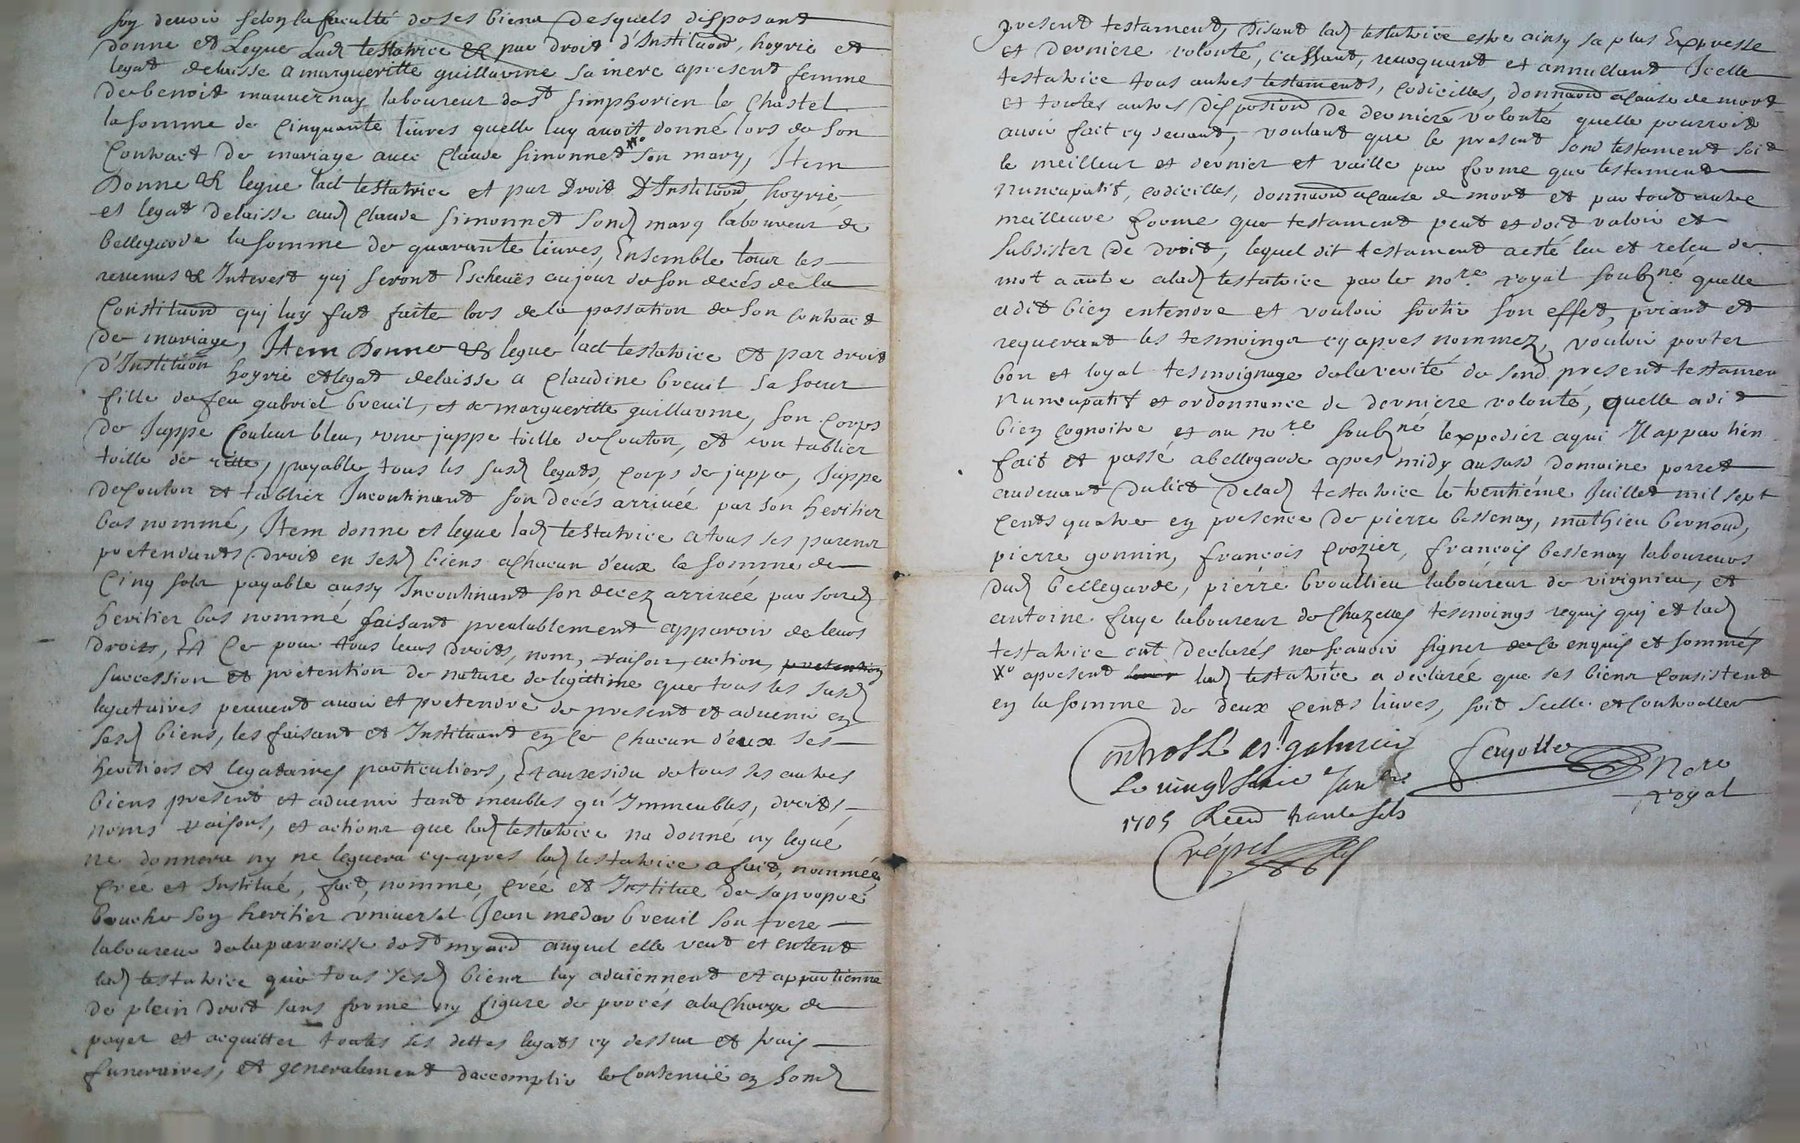 son devoir selon la faculté de ses biens desquels disposant
donne et Legue Lad testatrice et par droit d'Institũon, hoyrie et
legat delaisse a margueritte guillaume sa mere apresent femme
de benoit mauvernay laboureur de st simphorien le chastel
la somme de cinquante livres quelle luy avoit donné lors de son
contract de mariage avec claude simonned xo son mary, Item
Donne & legue lad testatrice et par Droit D'Institũon, hoyrie,
et legat delaisse aud claude simonned sond mary laboureur de
bellegarde la somme de quarante livres, Ensemble tour les
revenus & Interest qui seront Escheués au jour de son decés de la
Constitũon qui luy fut faite lors de la passation de son contract
de mariage, Item Donne & legue lad testatrice et par droit
d'Institũon hoyrie et legat delaisse a claudine breuil sa soeur
fille de feu gabriel breuil, et de margueritte guillaume, son corps
de Juppe couleur bleu, une juppe toille de couton, et un tablier
toille de ritte, payable tous les susd legats, corps de juppe, Juppe
de couton et tablier Incontinant son decés arrivée par son heritier
bas nommé, Item donne et legue lad testatrice a tous ses parens
pretendants droit en sesd biens a chacun d'eux la somme de
cinq sols payable aussy Incontinant son decez arrivée par sond
heritier bas nommé faisant prealablement apparoir de leurs
droits, Et ce pour tous leurs droits, nom, raison, action, pretention
succession et pretention de nature de legittime que tous les susd
legataires peuvent avoir et pretendre de present et advenir en
sesd biens, les faisant et Instituant en ce chacun d'eux ses
heritiers et legataires particuliers, Et au residu de tous ses autres
biens present et advenir tant meubles qu'Immeubles, droits,
noms raisons, et actions que lad testatrice na donné ny legué
ne donnera ny ne leguera cy apres lad testatrice a fait, nommée
créé et Institué, fait, nomme, créé et Institue de sa propre
bouche son heritier universel Jean medar breuil son frere
laboureur de la parroisse de st myard auquel elle veut et entend
lad testatrice que tous sesd biens luy adviennent et appartienne
de plein droit sans forme ny figure de procés a la charge de
payer et acquitter toutes ses dettes legats cy dessus et frais
funeraires, et generalement d'accomplir le contenüe en sond
present testament, disant lad testatrice estre ainsy sa plus Expresse
et derniere volonté, cassant, revoquant et annullant Icelle
testatrice tous autres testaments, codicilles, donnaũon a cause de mort
et toutes autres dispositions de derniere volonté quelle pourroit
avoir fait cy devant, voulant que le present sond testament soit
le meilleur et dernier et vaille par forme que testament
nuncupatif, codicilles, donnaũon a cause de mort et par tout autre
meilleure forme que testament peut et doit valoir et
subsister de droit, lequel dit testament a esté leu et releu de
mot a autre a lad testatrice par le nore royal soubné quelle
a dit bien entendre et vouloir sortir son effet, priant et
requerant les tesmoings cy apres nommez, vouloir porter
bon et loyal tesmoignage de la verité de sond present testamen
nuncupatif et ordonnance de derniere volonté, quelle a dit
bien cognoitre et au nore soubné lexpedier a qui Il appartien
fait et passé a bellegarde apres midy au susd domaine porret
audevant du lict de lad testatrice le trentiéme Juillet mil sept
cents quatre en presence de pierre bessenay, mathieu bernoud,
pierre gonnin, françois crozier, françois bessenay laboureurs
dud bellegarde, pierre broullieu laboureur de virignieu, et
antoine faye laboureur de chazelles tesmoings requis qui et lad
testatrice ont declarés ne scavoir signer de ce enquis et sommés
xo apresent lad testatrice a declarée que ses biens consistent
en la somme de deux cents livres, soit scelle et controoller
Controllé a st galmier
Le vingt Janer
1705 Receu trante sols
Crépet
fayolle Nore
royal